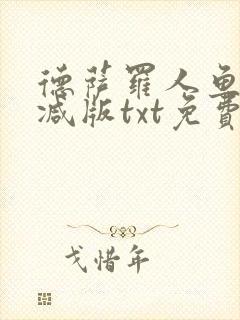 德萨罗人鱼
减版txt免费
戈惜年